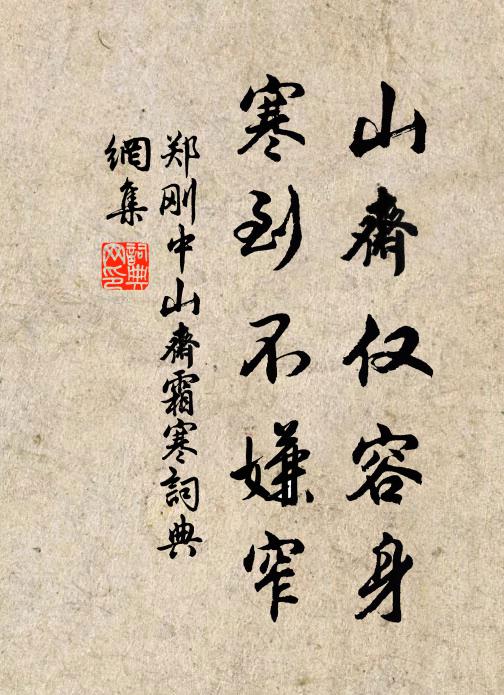 山齋仅容身
寒到不嫌窄
郑刚中山齋霜寒詞典
網集
詞典
网印